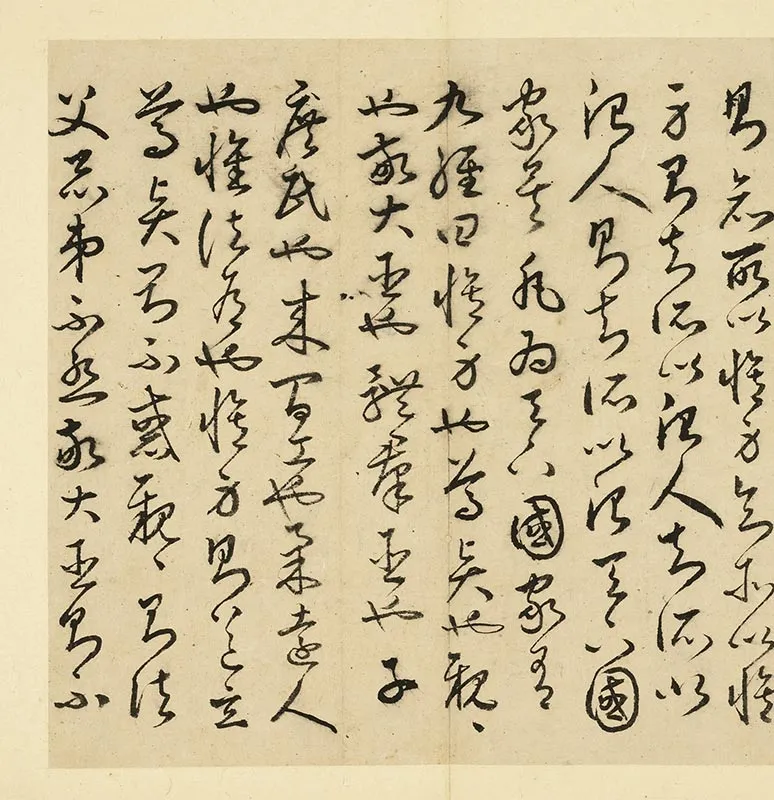 則知所以脩身知所以脩
身則知所以治人知所以
治人則知所以治天下國
家矣凡為天下國家有
九經曰脩身也尊賢也親〻
也敬大臣也體群臣也子
庶民也來百工也柔遠人
也懷諸侯也脩身則道立
尊賢則不惑親〻則諸
父昆弟不怨敬大臣則不